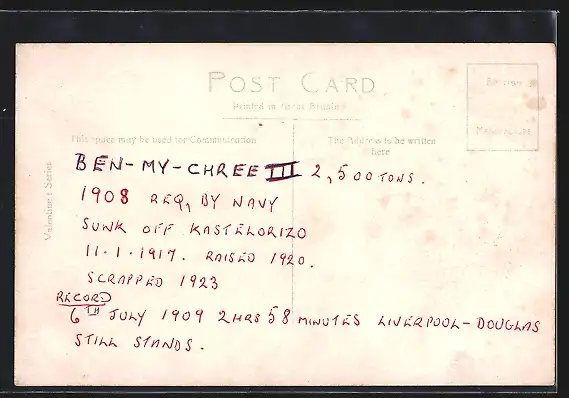 POST CARD
Printed in Great Britain
BRITISH
MANUFACTURE
This space may be used for Communication
The Address to be written
here
Valentine's Series
BEN-MY-CHREE III 2,500 TONS.
1908 REQ, BY NAVY
SUNK OFF KASTELORIZO
11.1.1917. RAISED 1920.
SCRAPPED 1923
RECORD
6TH JULY 1909 2 HRS 58 MINUTES LIVERPOOL-DOUGLAS
STILL STANDS.